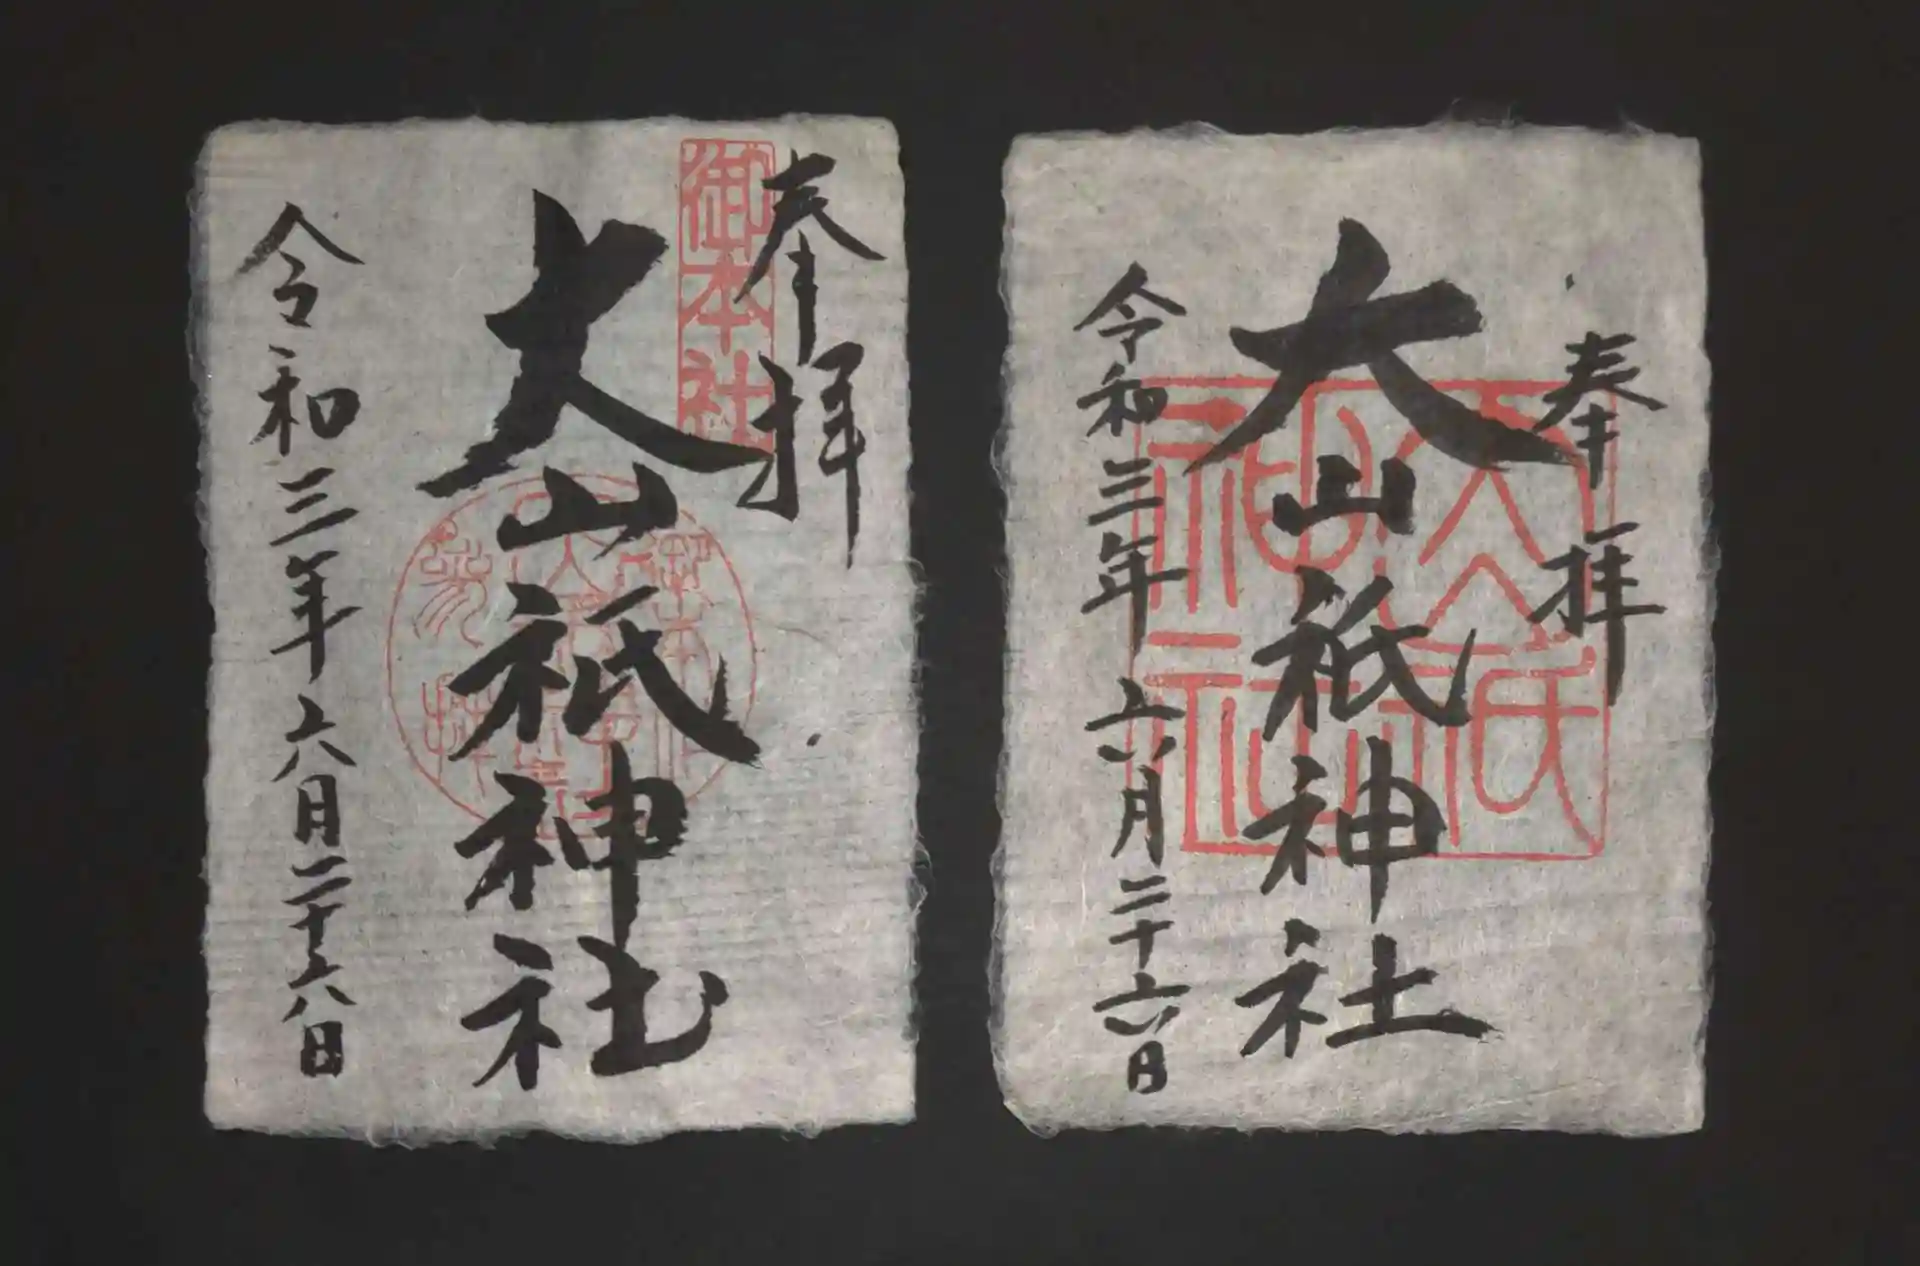 奉拝
御本社
大山祇神社
令和三年六月二十六日
奉拝
大山祇神社
大山祇神社
令和三年六月二十六日